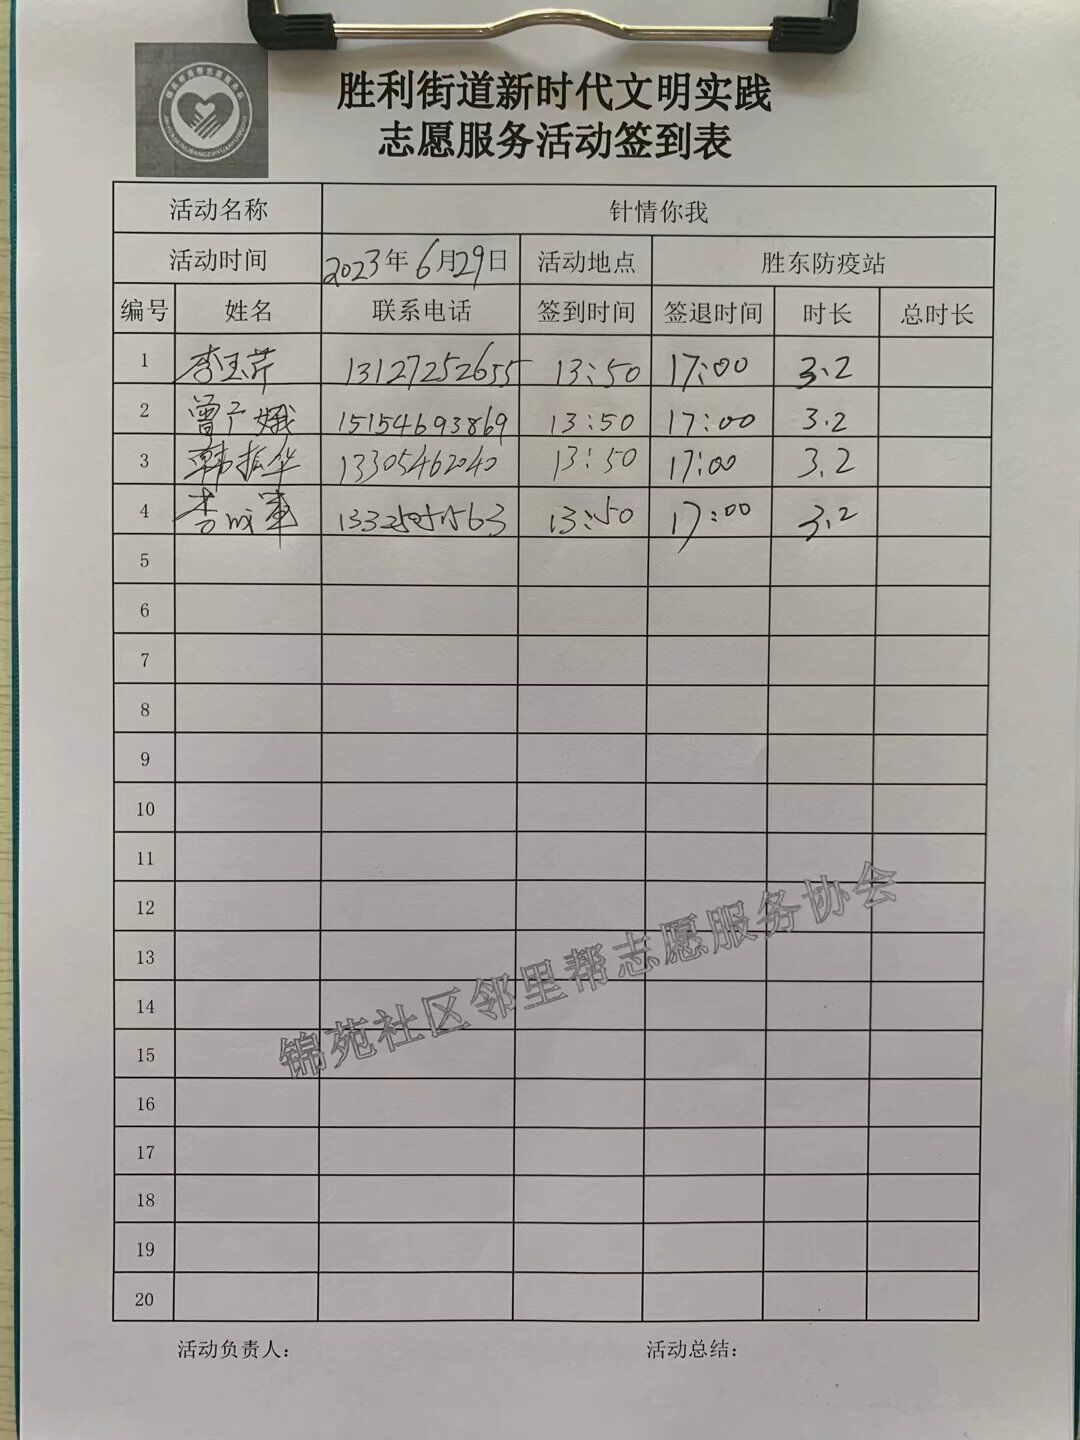 胜利街道新时代文明实践
志愿服务活动签到表
活动名称 针情你我
活动时间 2023年6月29日 活动地点 胜东防疫站
编号 姓名 联系电话 签到时间 签退时间 时长 总时长
1 李玉芹 13127252655 13:50 17:00 3.2
2 曾广娥 15154693869 13:50 17:00 3.2
3 韩振华 13305462040 13:50 17:00 3.2
4 李 13:50 17:00 3.2
5
6
7
8
9
10
11
12
13
14
15
16
17
18
19
20
锦苑社区邻里帮志愿服务协会
活动负责人： 活动总结：